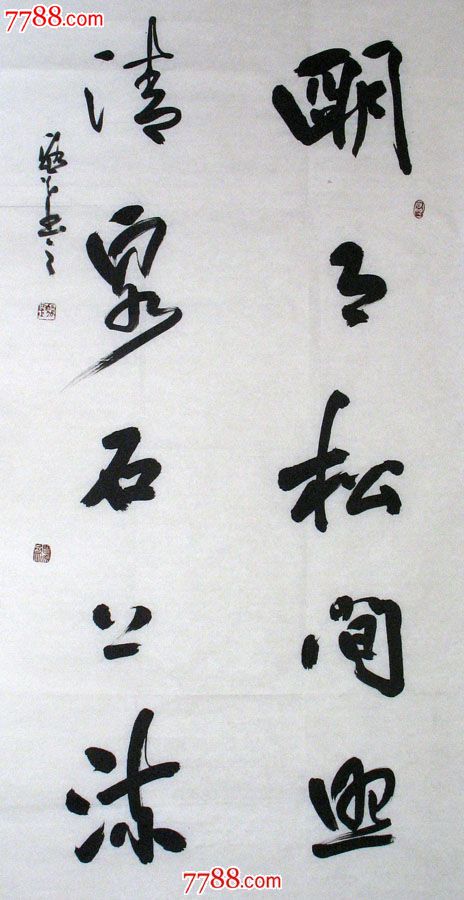 7788.com
明月松間照
清泉石上流
7788.com